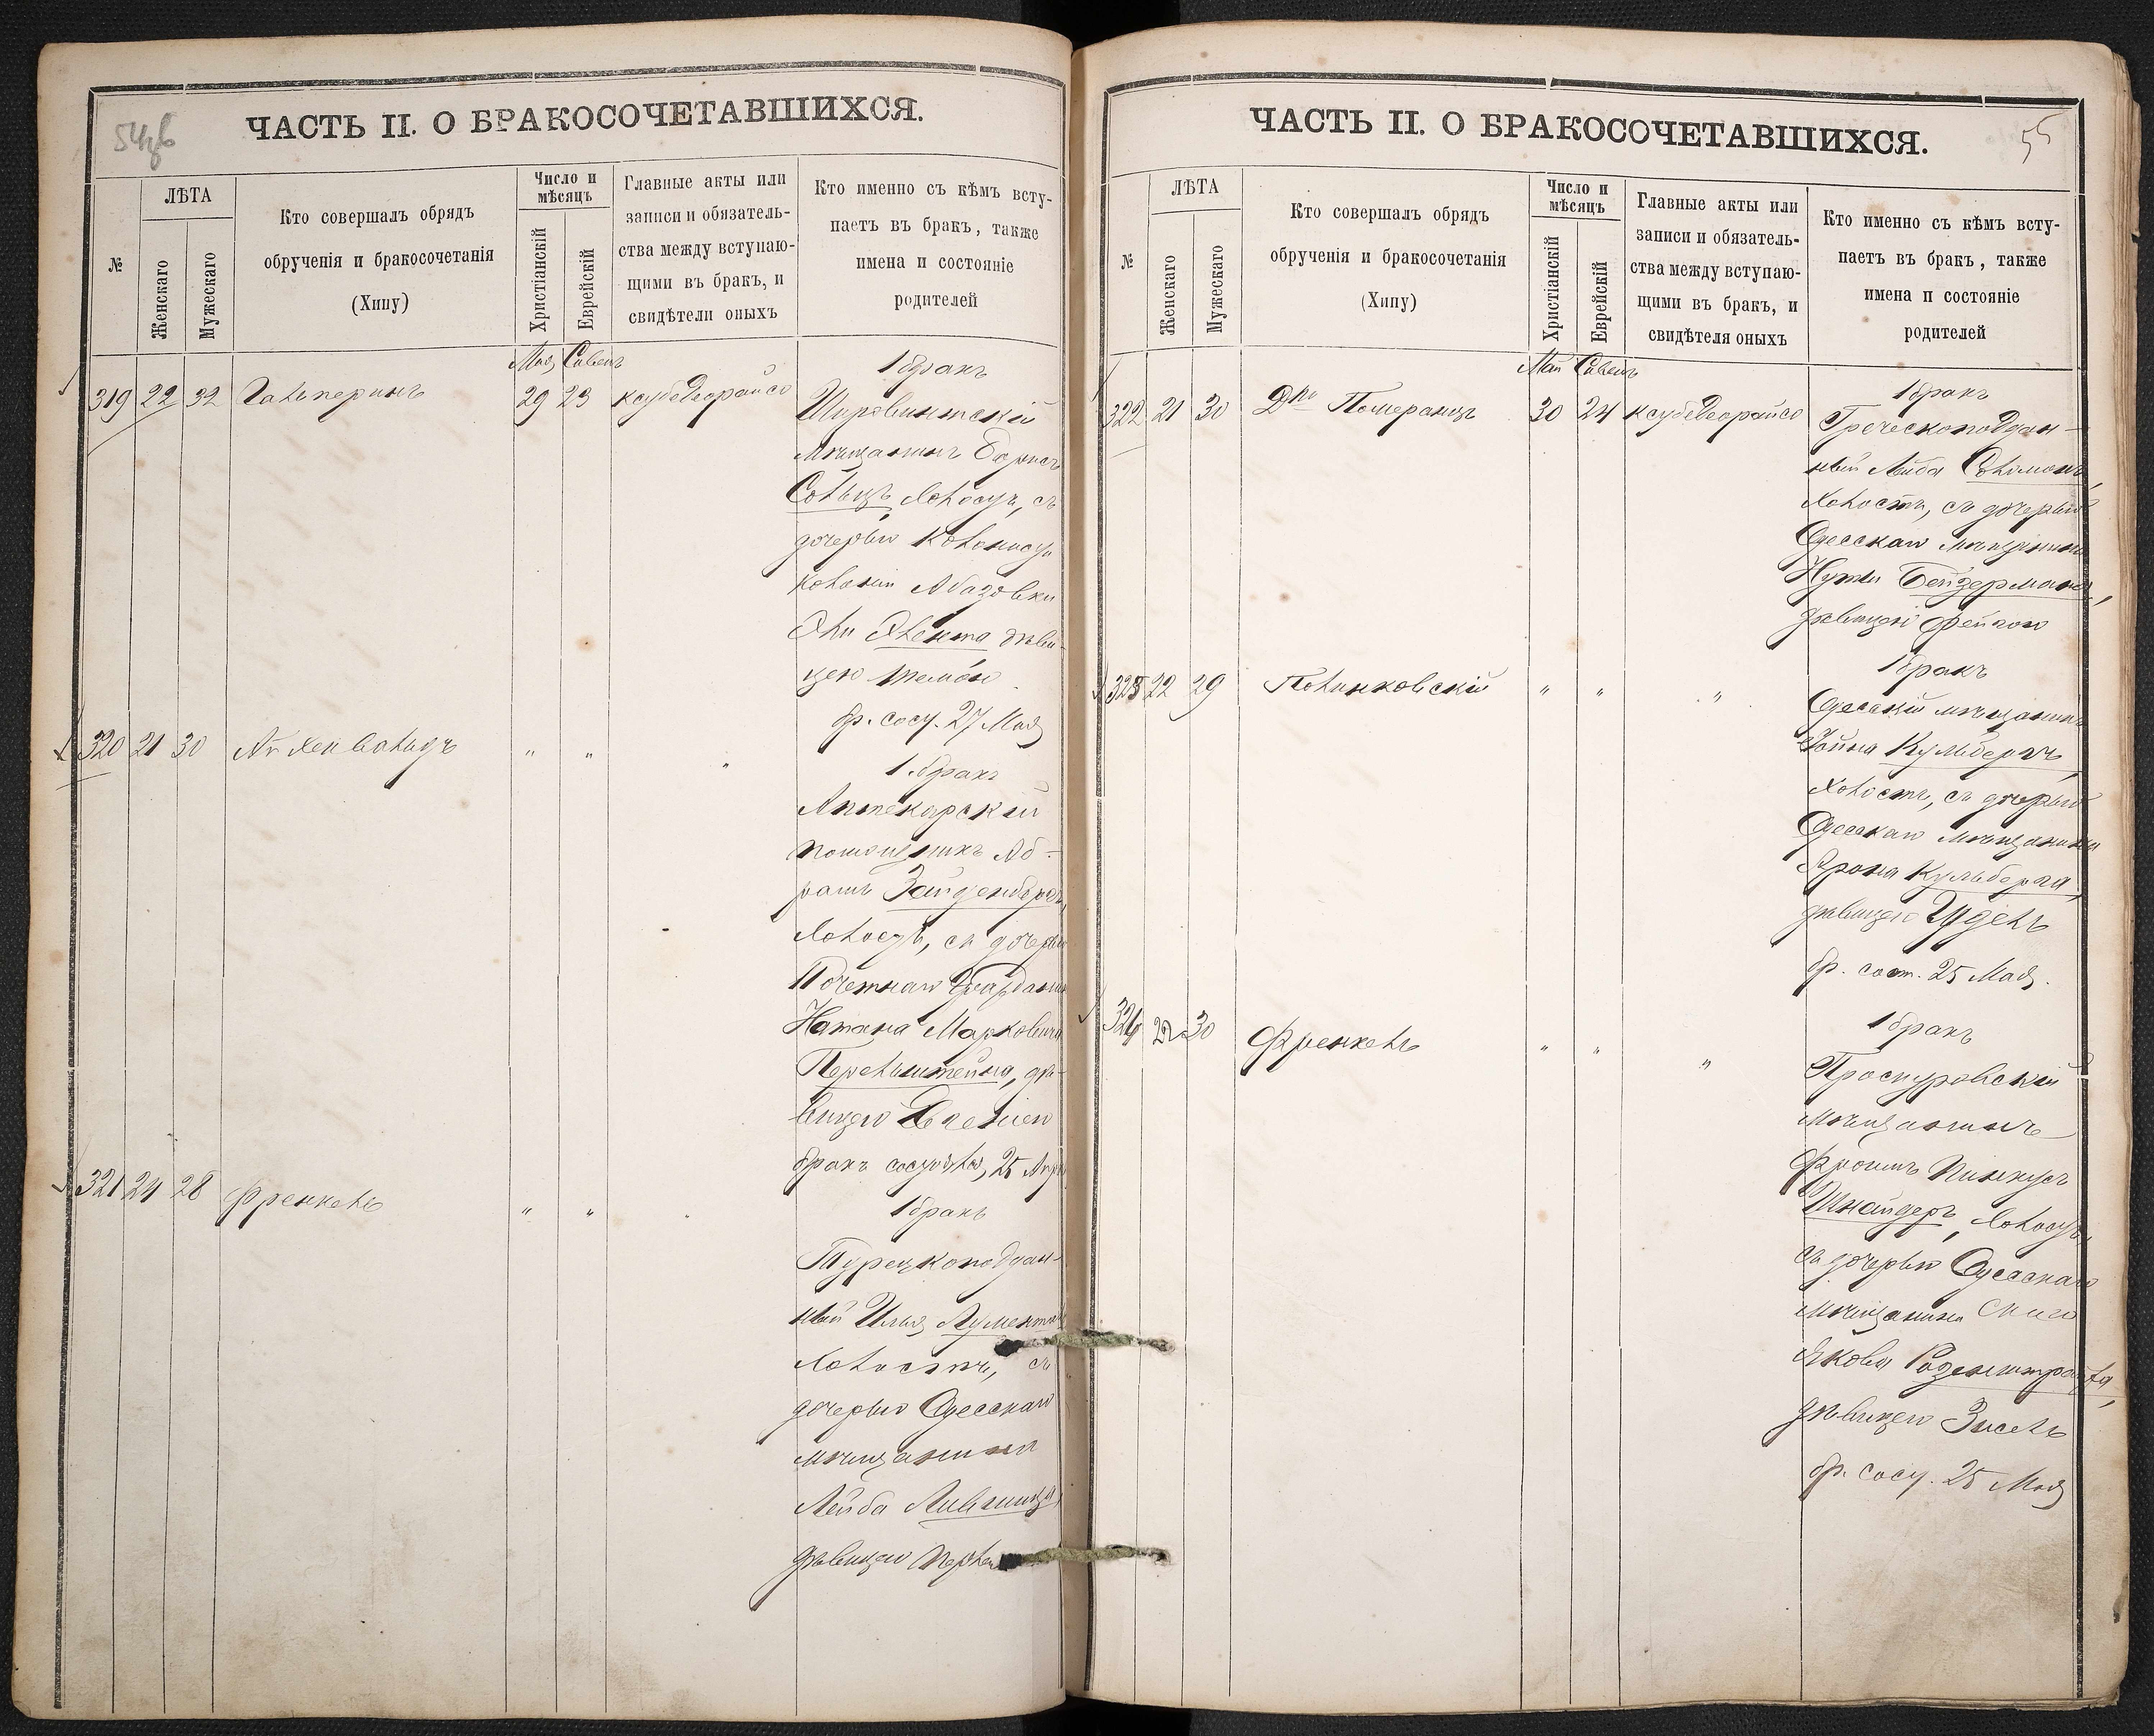 54 об
ЧАСТЬ II. О БРАКОСОЧЕТАВШИХСЯ.
№
ЛѢТА
Женскаго
Мужескаго
Кто совершалъ обрядъ
обрученія и бракосочетанія
(Хипу)
Число и
мѣсяцъ
Христіанскій
Еврейскій
Главные акты или
записи и обязатель-
ства между вступаю-
щими въ бракъ, и
свидѣтели оныхъ
Кто именно съ кѣмъ всту-
паетъ въ бракъ, также
имена и состояніе
родителей
Мая Сивенъ
1 бракъ
319 22 32 Гальперинъ 29 23 ксубе Деорайсо
Ширвинтскій
мѣщанинъ Борисъ
Сольцъ холостъ, съ
дочерью колониста
колоніи Абазовки
Эли дѣви-
цею
бр. сост. 27 Мая
320 21 30 " " "
1 бракъ
Аптекарскій
помощникъ Аб-
рамъ Зайденберъ,
холостъ, съ дочерью
Почетнаго Гражданина
Натана Марковича
Перельштейна, дѣ-
вицею
бракъ состоялся, 25 Апр
321 24 28 Френкель " " "
1 бракъ
Турецкоподдан-
ный Илья
холостъ, съ
дочерью Одесскаго
мѣщанина
Лейба Лившица
дѣвицею Перлею
55
ЧАСТЬ II. О БРАКОСОЧЕТАВШИХСЯ.
№
ЛѢТА
Женскаго
Мужескаго
Кто совершалъ обрядъ
обрученія и бракосочетанія
(Хипу)
Число и
мѣсяцъ
Христіанскій
Еврейскій
Главные акты или
записи и обязатель-
ства между вступаю-
щими въ бракъ, и
свидѣтеля оныхъ
Кто именно съ кѣмъ всту-
паетъ въ бракъ, также
имена п состояніе
родителей
Май Сивенъ
1 бракъ
322 21 30 Померанцъ 30 24 ксубе Деорайсо
Греческоподдан-
ный Лейба Солімонъ,
холостъ, съ дочерью
Одесскаго мѣщанина
Нуты Бейдермана,
дѣвицею Фейгою
323 22 29 Полинковскій " " "
1 бракъ
Одесскій мѣщанинъ
Кульбергъ,
холостъ, съ дочерью
Одесскаго мѣщанина
Арона Кульберга,
дѣвицею Идель
бр. сост. 25 Мая.
324 22 30 Френкель " " "
1 бракъ
Проскуровскій
мѣщанинъ
Фроимъ Пинкусъ
Шнайдеръ, холостъ,
съ дочерью Одесскаго
мѣщанина
Якова
дѣвицею Зисель
бр. сост. 25 Мая